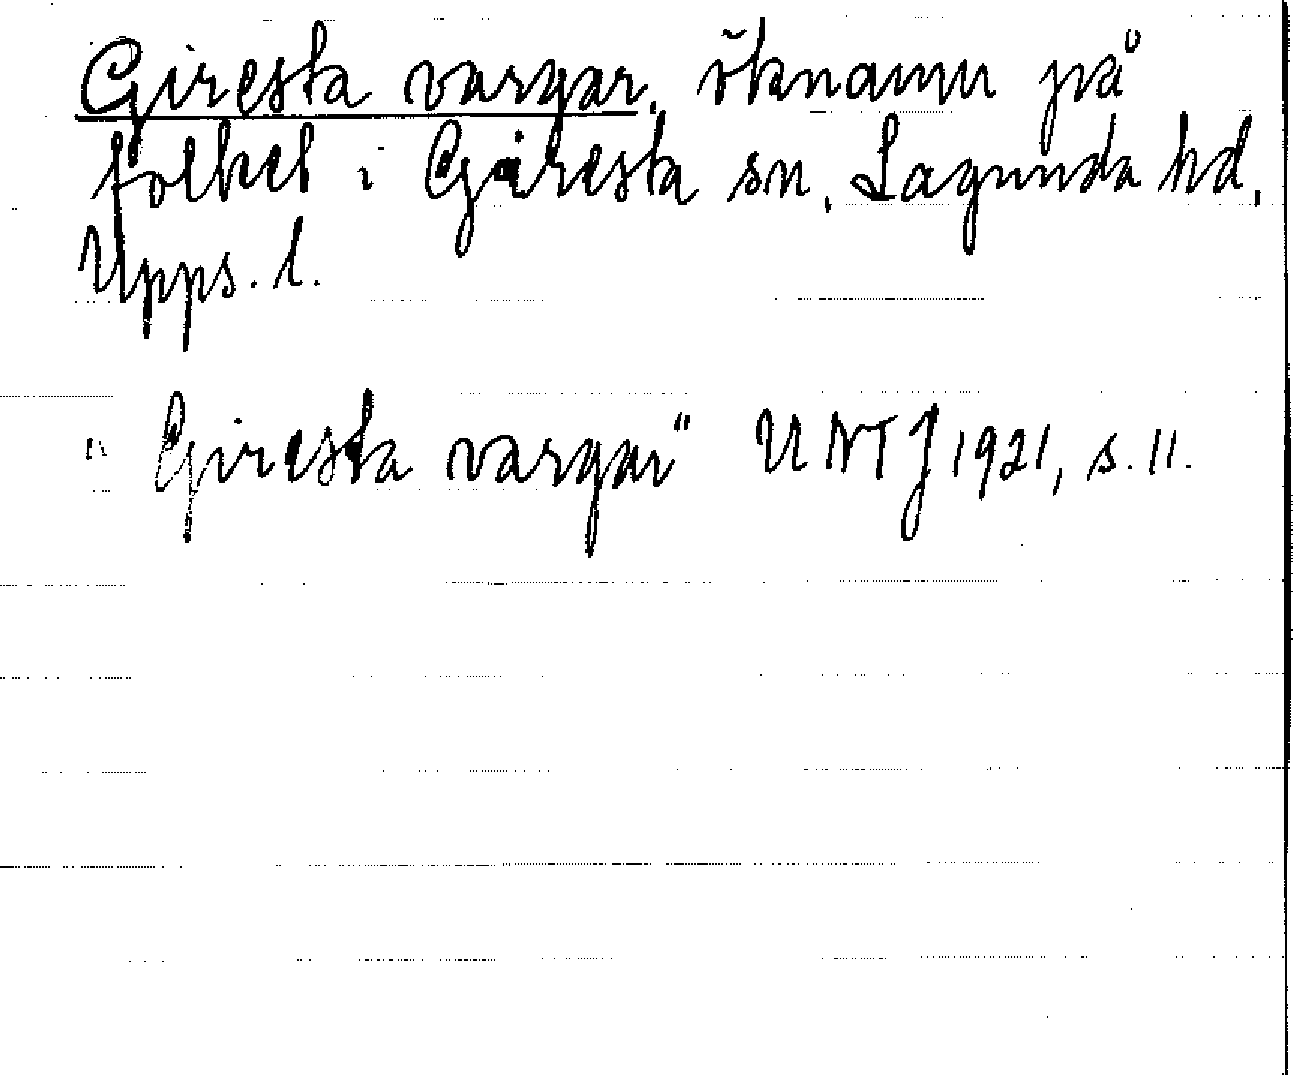 Giresta vargar, öknamn på
folket i Giresta sn, Lagunda hd,
Upps. l.
"Giresta vargar" UNTJ 1921, s. 11.